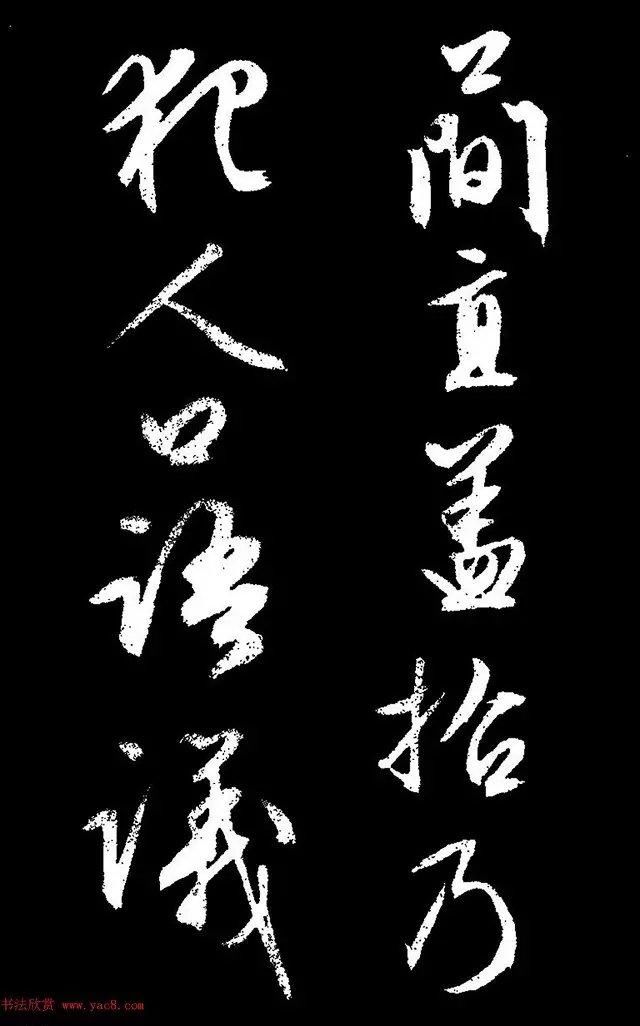 簡直盖拾乃
犯人口語議
书法欣赏 www.yac8.com